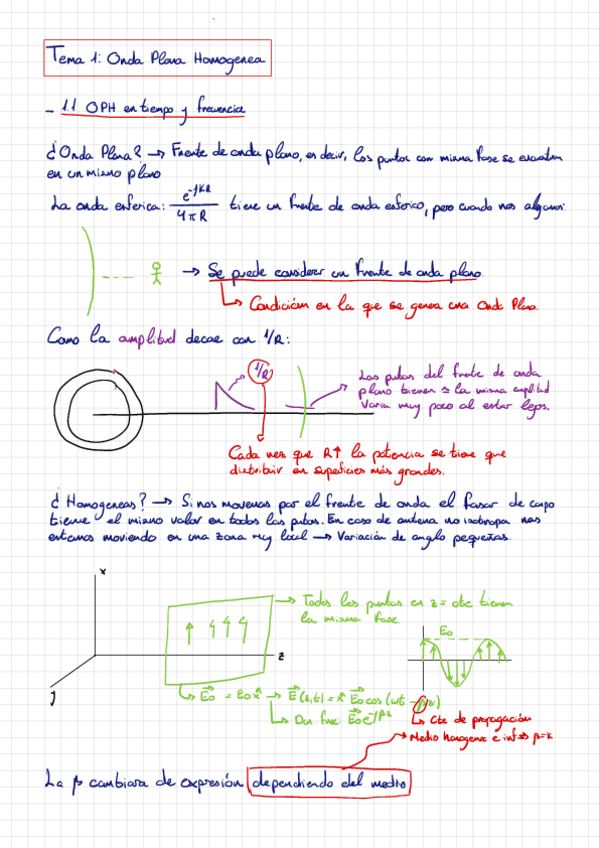 Tema 1: Onda Plana Homogenea
- 1.1 OPH en tiempo y frecuencia
¿Onda Plana? → Frente de onda plano, es decir, los puntos con misma fase se encuentran
en un mismo plano
La onda esferica: e^-jKR / 4πR tiene un frente de onda esferico, pero cuando nos alejamos:
→ Se puede considerar un frente de onda plano.
↳ Condición en la que se genera una Onda Plana.
Como la amplitud decae con 1/R:
1/R
Los puntos del frente de onda
plano tienen ≈ la misma amplitud
Varia muy poco al estar lejos.
Cada vez que R↑ la potencia se tiene que
distribuir en superficies más grandes.
¿Homogeneas? → Si nos movemos por el frente de onda el fasor de campo
tiene el mismo valor en todos los puntos. En caso de antena no isotropa nos
estamos moviendo en una zona muy local → Variación de anglo pequeñas.
x
→ Todos los puntos en z = cte tienen
la misma fase.
Eo
z
y
↳ Eo = Eo x̂ → E(z,t) = x̂ Eo cos(wt - βz)
↳ Dom frec: Eo e^-jβz
↳ Cte de propagación
→ Medio homogeneo e inf → β=k
La β cambiara de expresión dependiendo del medio